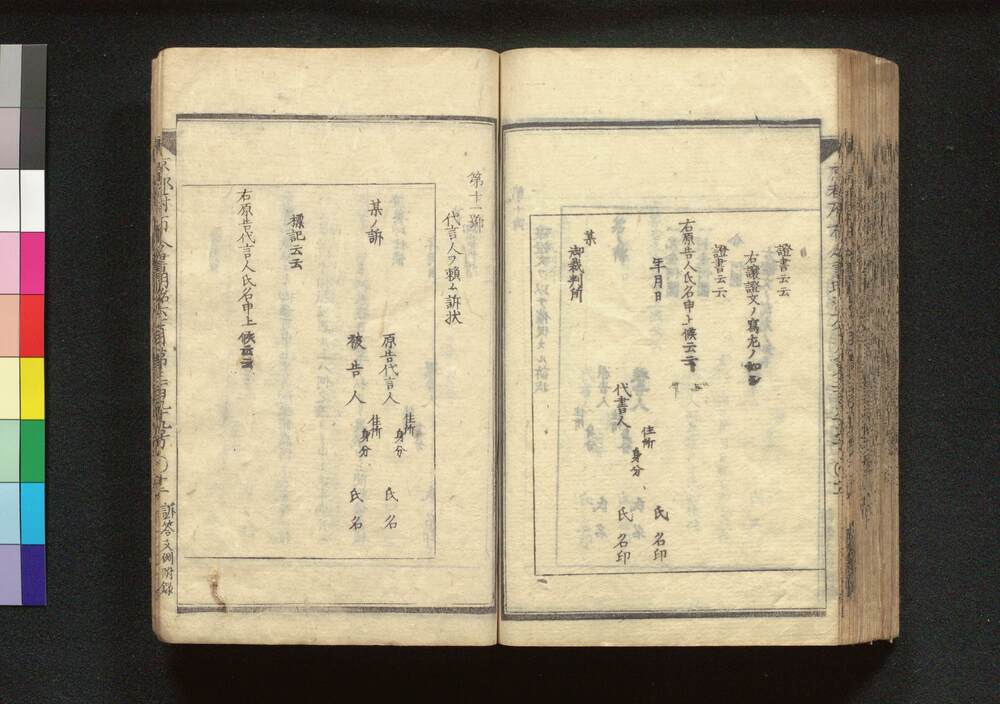 證書云云
右讓證文ノ寫左ノ如シ
證書云云
右原告人氏名申上候云云
年月日
氏名印
代書人
住所
身分
氏名印
某
御裁判所
第十一號
代言人ヲ賴ム訴狀
某ノ訴
原告代言人
住所
身分
氏名
被告人
住所
身分
氏名
標記云云
右原告代言人氏名申上候云云
訴答文例附錄